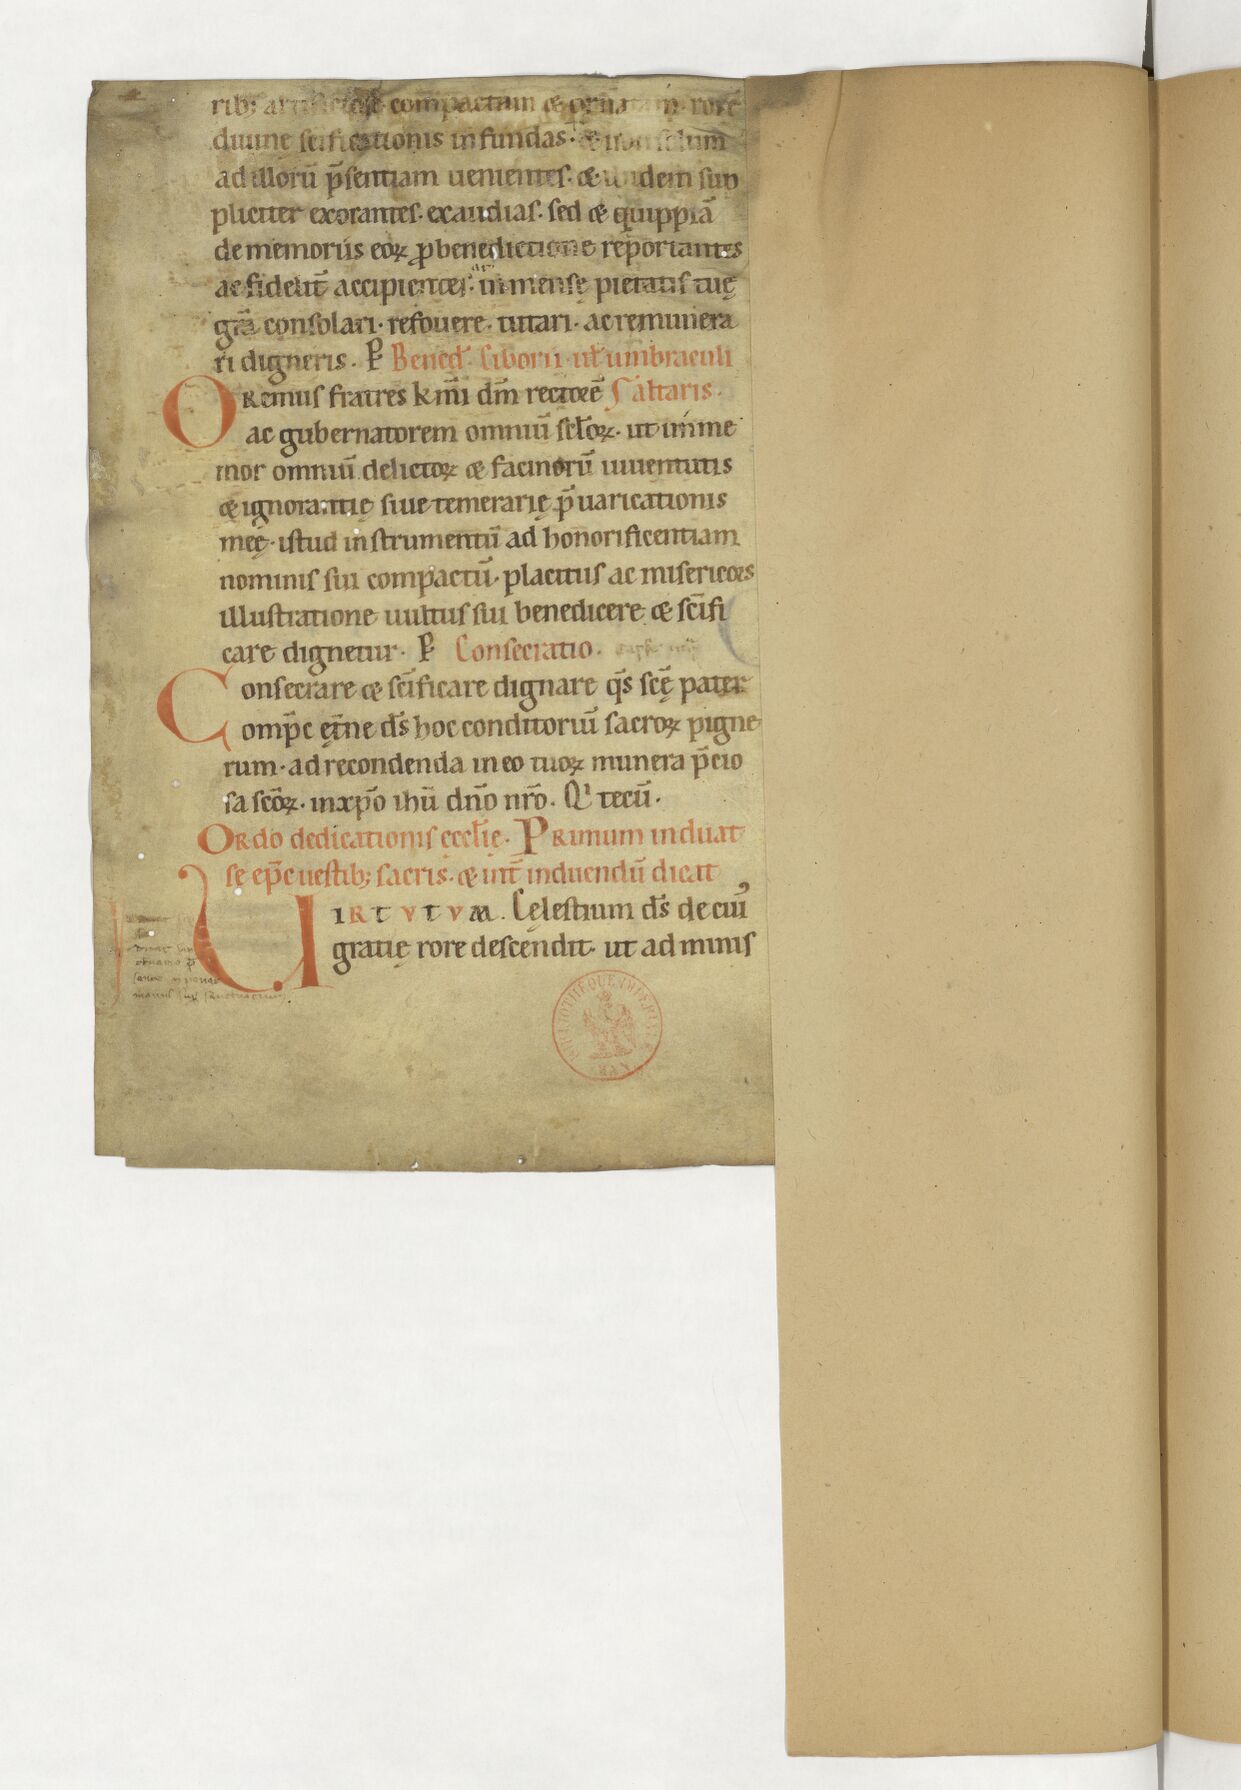 rib; artificiose compactam & ornatam. rore
diuinę scificationis infundas. & non solum
ad illorū p̄sentiam uenientes. & ibidem sup
pliciter exorantes. exaudias. sed & quippiā
de memoriis eoꝝ ꝓ benedictione reportantes
ac fidelit̄ accipientes. inmensę pietatis tuę
grā consolari. refouere. tutari. ac remunera
ri digneris. P̄ Bened̄. siborii. ul̄ umbraculi
ORemus fratres kr̄mi dn̄m rectorē S altaris.
ac gubernatorem omniū sc̄loꝝ. ut inme
mor omniū delictoꝝ & facinorū iuuentutis
& ignorantię siue temerarię p̄uaricationis
meę. istud instrumentū ad honorificentiam
nominis sui compactū. placitus ac misericors
illustratione uultus sui benedicere & sc̄ifi
care dignetur. P̄ Consecratio.
Consecrare & sc̄ificare dignare q̄s scē pater
omp̄c ęt̄ne ds̄ hoc conditoriū sacroꝝ pigne
rum. ad recondenda in eo tuoꝝ munera p̄cio
sa sc̄oꝝ. in xp̄o ihū dn̄o nr̄o. Qi tecū.
ORdo dedicationis eccl̄ię. PRimum induat
se ep̄c uestib; sacris. & int̄ induendū dicat
UIRTVTVM. Cęlestium ds̄ de cui᾽
gratię rore descendit. ut ad minis
manus sup̄ sanctuarium.
BIBLIOTHÈQUE IMPÉRIALE MAN.